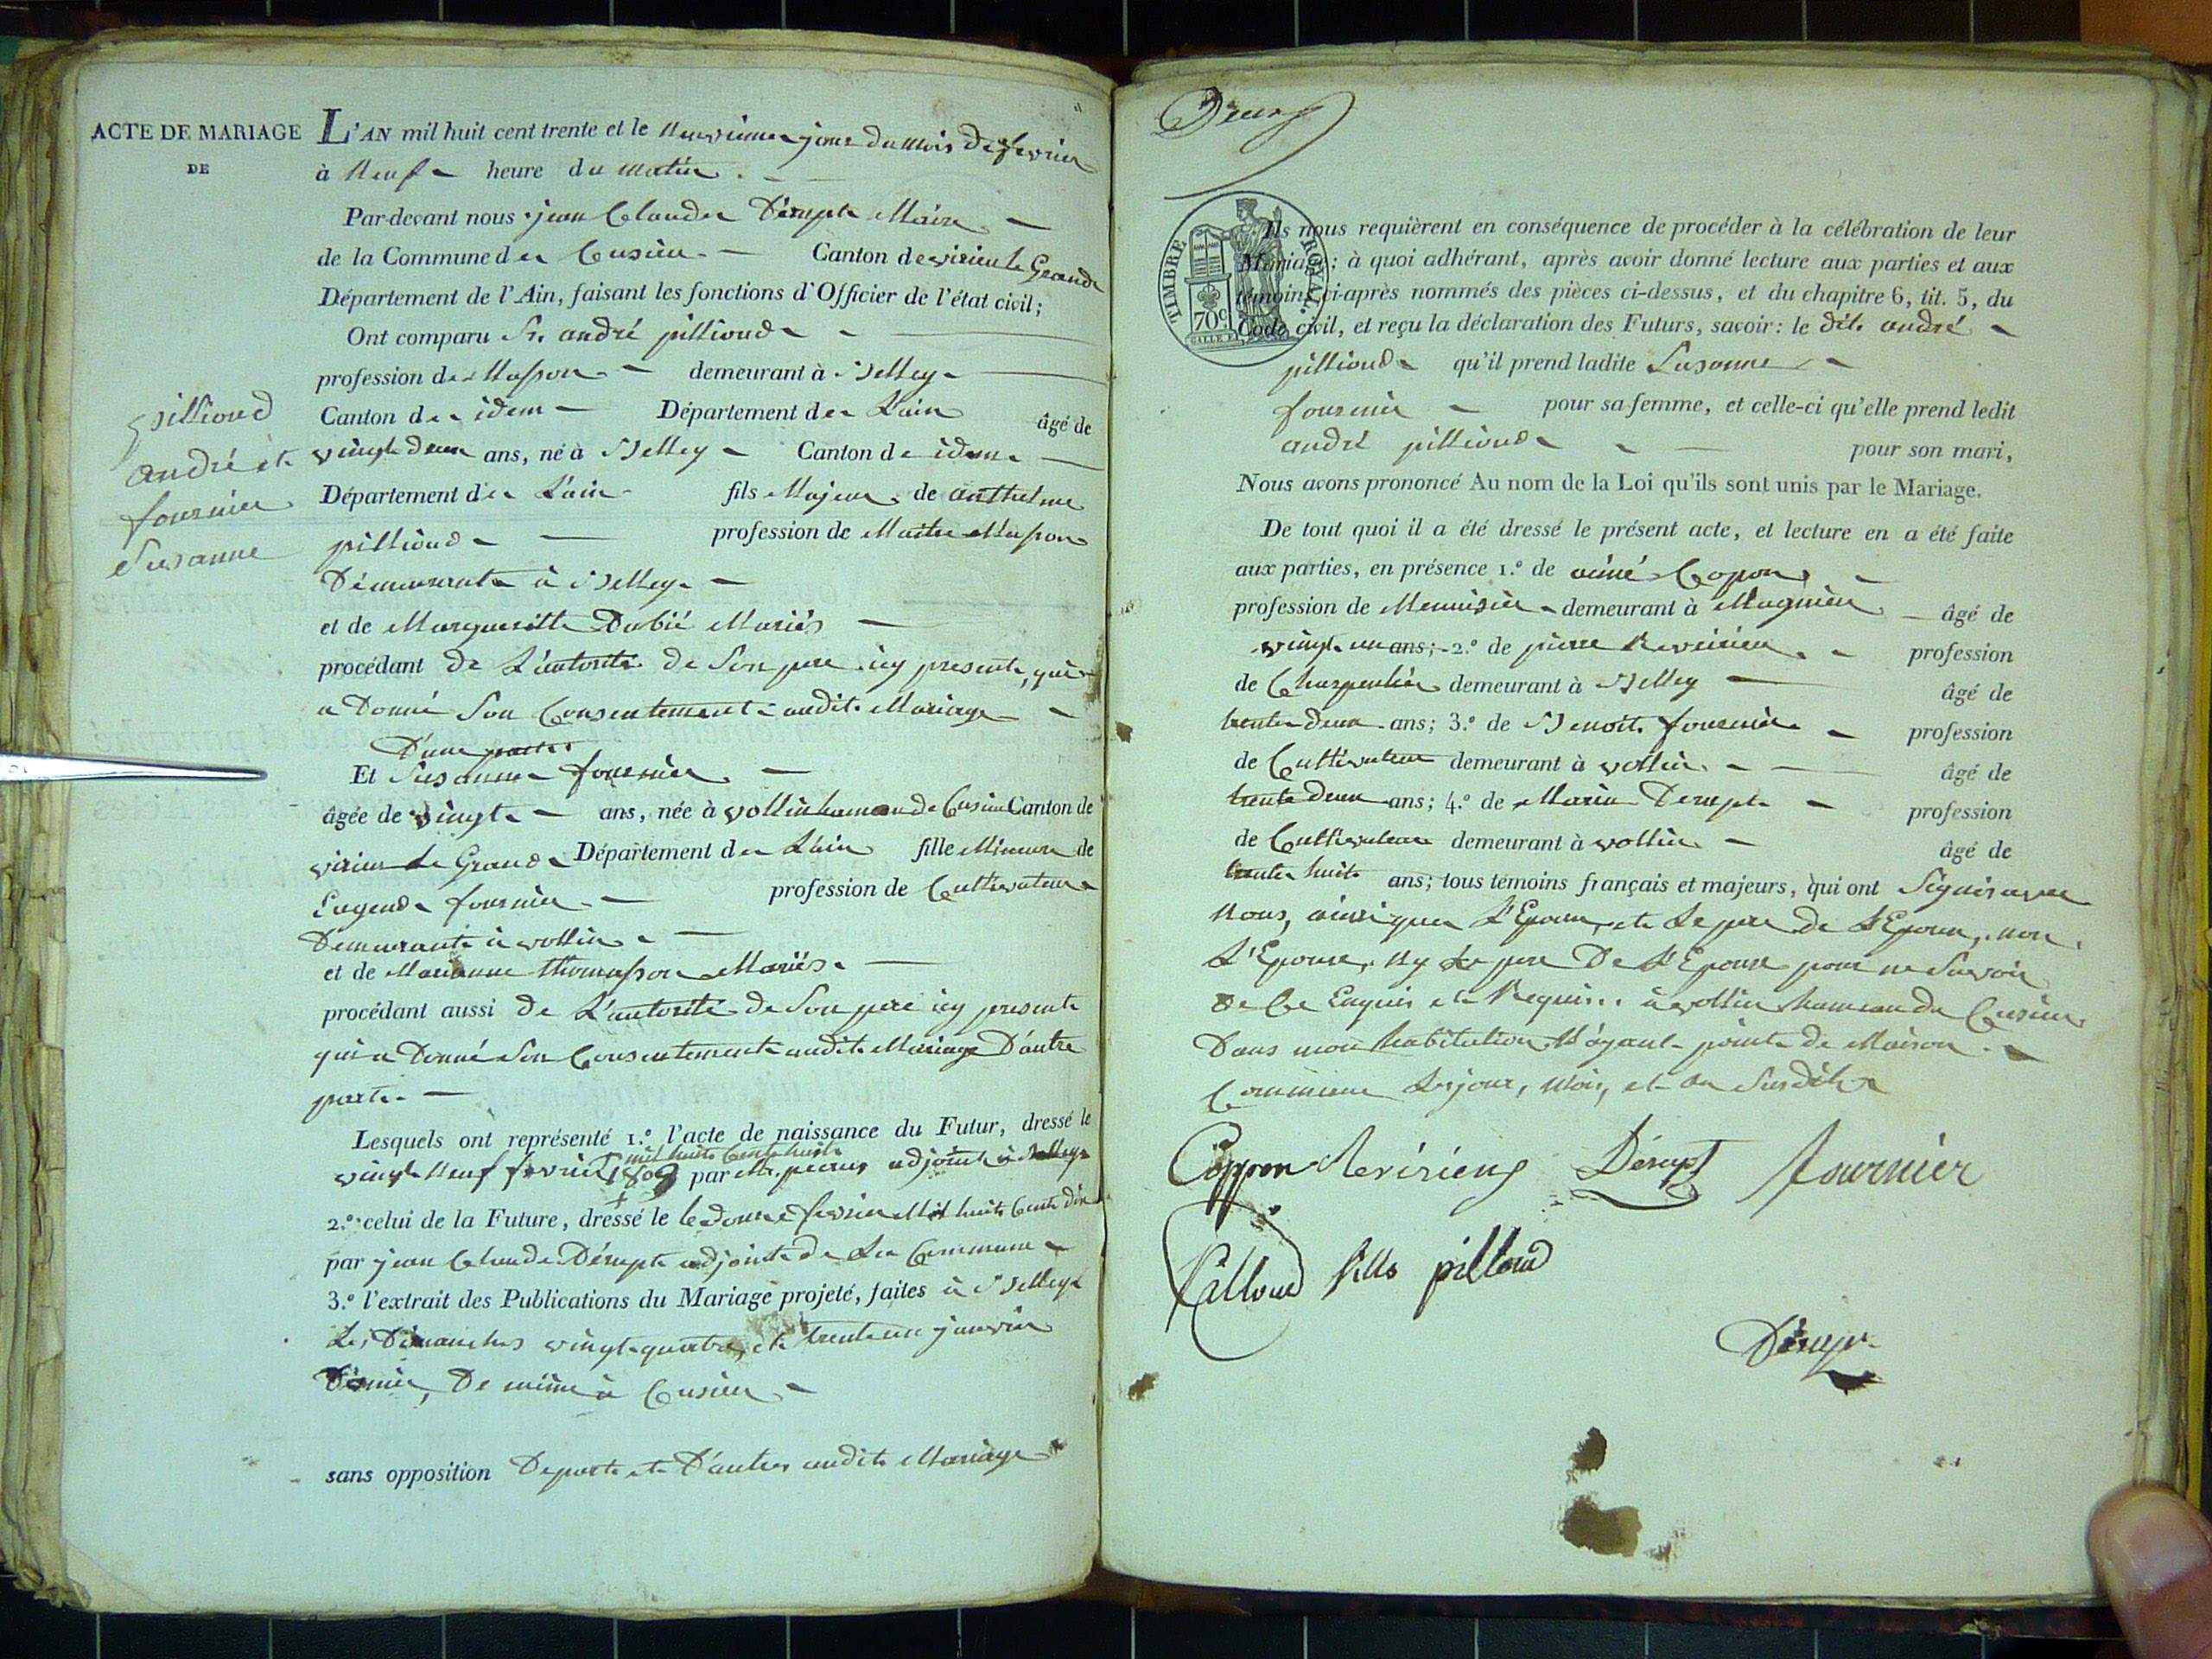 ACTE DE MARIAGE
DE
pillioud
andré et
fournier
Susanne
L'AN mil huit cent trente et le neuvieme jour du mois de fevrier
à neuf heure du matin.
Par-devant nous jean Claude Dérupt Maire
de la Commune de Cusieu Canton de virieu le Grand
Département de l'Ain, faisant les fonctions d'Officier de l'état civil;
Ont comparu Sr. andré pillioud
profession de Masson demeurant à Belley
Canton de idem Département de L'ain âgé de
vingt deux ans, né à Belley Canton de idem
Département de L'ain fils Majeur de anthelme
pillioud profession de Maitre Masson
Demeurant à Belley
et de Margueritte Dubié Mariés
procédant de L'autorité de Son pere icy present, qui
a Donné Son Consentement audit Mariage
D'une part
Et Susanne fournier
âgée de vingt ans, née à vollien hameau de Cusieu Canton de
virieu le Grand Département de L'ain fille Mineure de
fournier profession de Cultivateur
Demeurant à vollien
et de Marianne thomasson Mariés
procédant aussi de L'autorité de Son pere icy present
qui a Donné Son Consentement audit Mariage D'autre
part.
Lesquels ont représenté 1.º l'acte de naissance du Futur, dressé le
mil huit Cent huit
vingt neuf fevrier 1808 par Mr. adjoint à Belley
2.º celui de la Future, dressé le le douze fevrier Mil huit Cent dix
par jean Claude Dérupt adjoint de La Commune
3.º l'extrait des Publications du Mariage projeté, faites à Belley
Les Dimanches vingt quatre, et trente un janvier
Dernier, De même à Cusieu
sans opposition De part et D'autre audit Mariage
Deux
TIMBRE ROYAL
70c
Ils nous requièrent en conséquence de procéder à la célébration de leur
Mariage; à quoi adhérant, après avoir donné lecture aux parties et aux
témoins ci-après nommés des pièces ci-dessus, et du chapitre 6, tit. 5, du
Code civil, et reçu la déclaration des Futurs, savoir: le dit andré
pillioud qu'il prend ladite Susanne
fournier pour sa femme, et celle-ci qu'elle prend ledit
andré pillioud pour son mari,
Nous avons prononcé Au nom de la Loi qu'ils sont unis par le Mariage.
De tout quoi il a été dressé le présent acte, et lecture en a été faite
aux parties, en présence 1.º de aimé Copon
profession de Menuisier demeurant à Magnieu âgé de
vingt un ans; 2.º de pierre Revirieu profession
de Charpentier demeurant à Belley âgé de
trente deux ans; 3.º de Benoit fournier profession
de Cultivateur demeurant à vollien âgé de
trente deux ans; 4.º de Marin Derupt profession
de Cultivateur demeurant à vollien âgé de
trente huit ans; tous témoins français et majeurs, qui ont Signés avec
Nous, ainsi que L'Epoux, et Le pere de L'Epoux, non
L'Epouse, ny Le pere De L'Epouse pour ne Savoir
de Ce Enquis et Requis. à vollien hameau de Cusieu
Dans mon habitation N'ayant point de Maison
Commune Les jour, Mois, et an Susdits
Coppon Revirieux Dérupt fournier
Pilloud fills pilloud
Dérupt